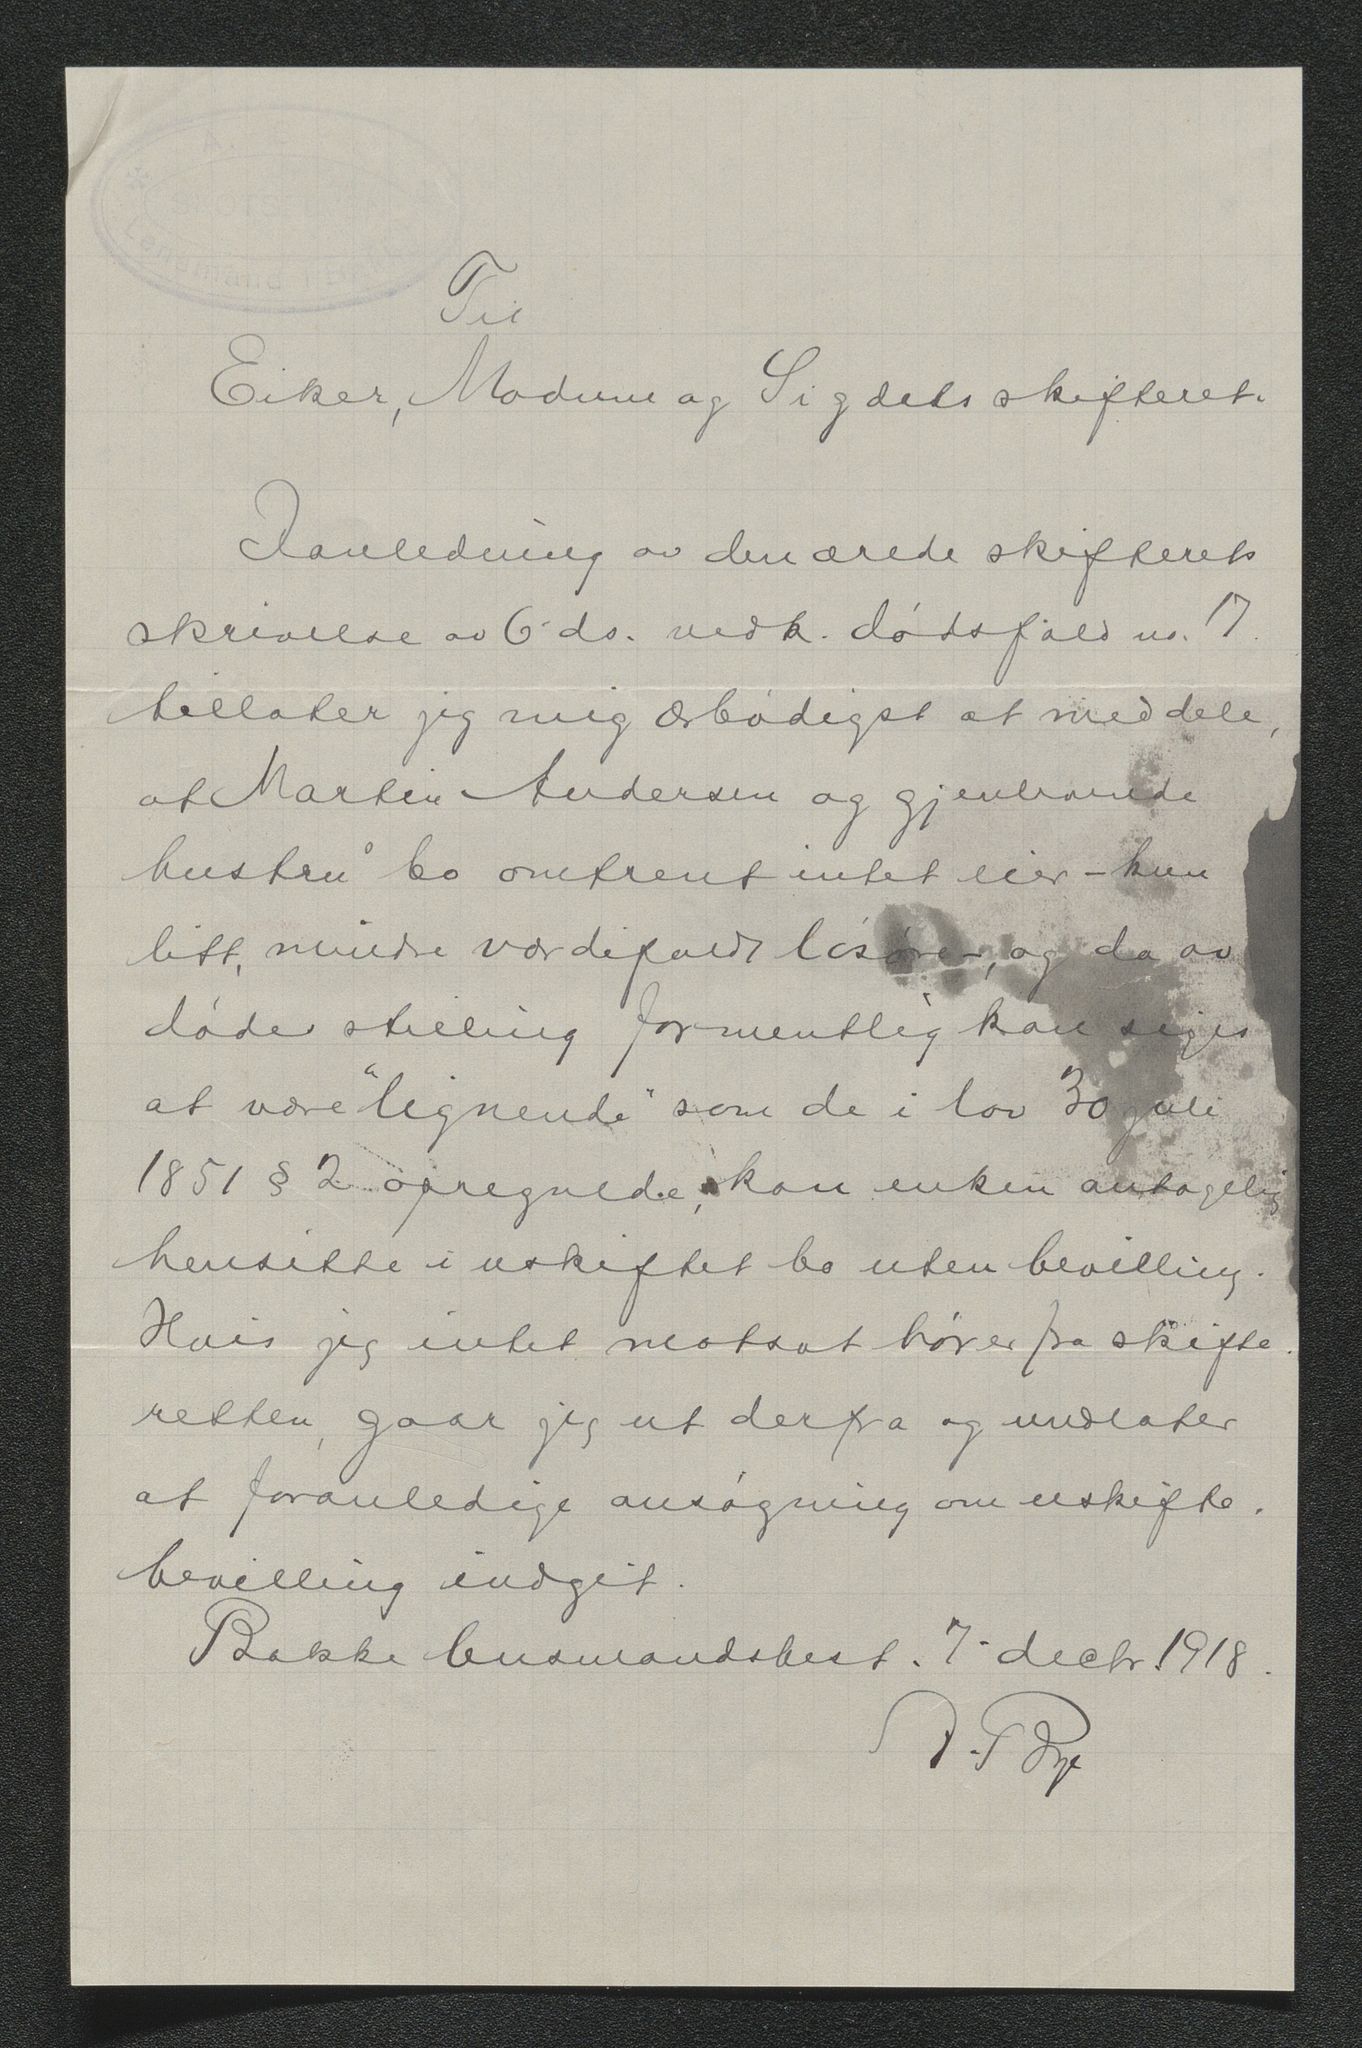 Til
Eiker, Modum og Sigdals skifteret.
I anledning av den ærede skifterets
skrivelse av 6 ds. vedk. dødsfald no. 17
tillater jeg mig ærbødigst at meddele,
at Martin Andersen og gjenlevende
hustru's bo omtrent intet eier - kun
litt, mindre værdifuldt løsøre -, og da av
dødes stilling formentlig kan siges
at være "lignende" som de i lov 30 juli
1851 § 2 opregnede, kan enken antagelig
hensitte i uskiftet bo uten bevilling.
Hvis jeg intet motsat hører fra skifte-
retten, gaar jeg ut derfra og undlater
at foranledige ansøgning om uskifte-
bevilling indgit.
Bakke lensmandsbest. 7- decbr. 1918.